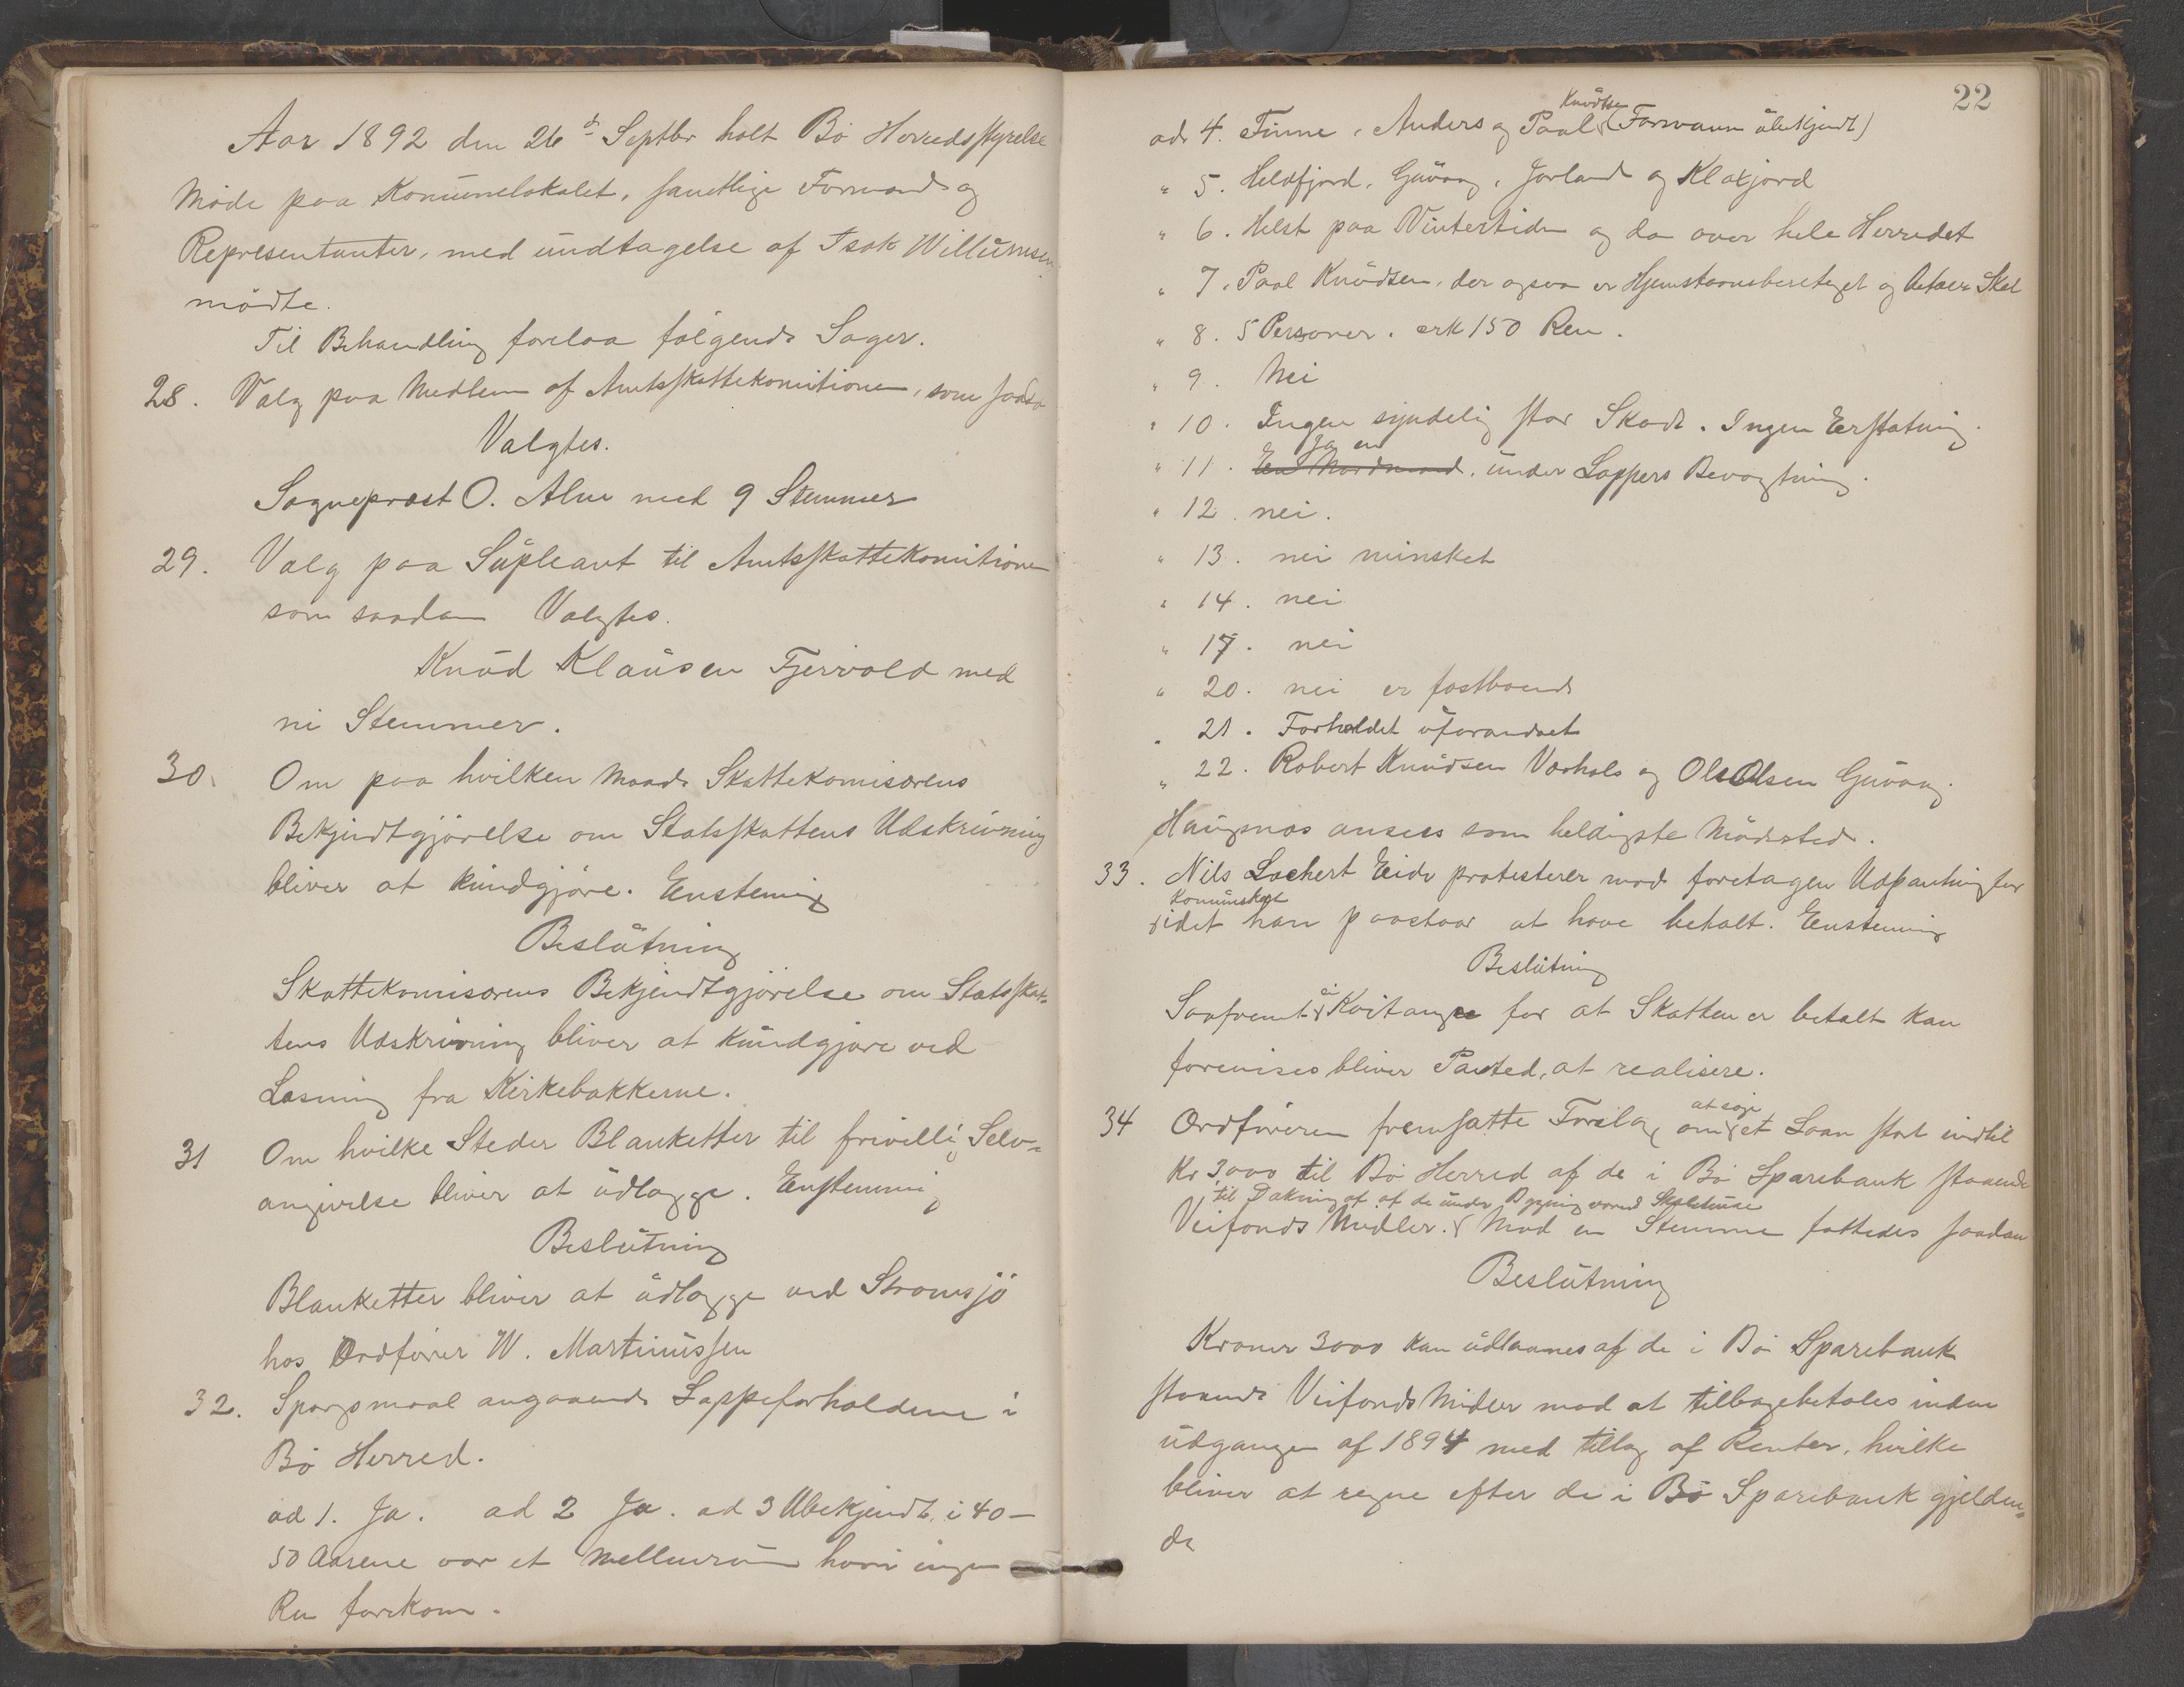 Aar 1892 den 26de Septbr holt Bö Herredsstyrelse
Möde paa Komünelokalet, samtlige Formænd og
Representanter, med ündtagelse af Isak Willümsen
mödte.
Til Behandling forelaa fölgende Sager.
28. Valg paa Medlem af Amtsskattekomitionen, som saada
Valgtes.
Sogneprest O. Alm med 9 Stemmer
29. Valg paa Süpleant til Amtsskattekomitionen
som saadan Valgtes.
Knüd Klaüsen Fjervold med
ni Stemmer.
30. Om paa hvilken Maade Skattekomisærens
Bekjendtgjörelse om Statsskattens Udskrivning
bliver at kündgjöre. Enstemig
Beslütning
Skattekomisærens Bekjendtgjörelse om Statsskat-
tens Udskrivning bliver at kündgjöre ved
Læsning fra Kirkebakkerne.
31 Om hvilke Steder Blanketter til frivillig Selv-
angivelse bliver at üdlægge. Enstemmig
Beslütning
Blanketter bliver at üdlægge ved Straumsjö
hos Ordförer W. Martinüssen
32. Spørgsmaal angaaende Lappeforholdene i
Bö Herred.
ad 1. Ja. ad 2 Ja. ad 3 Ubekjendt, i 40-
50 Aarene var et Mellemrüm hvori ingen
Ren forekom.
22
Knüdsen
ad 4. Finne, Anders og Paal (Fornavn übekjendt)
" 5. Heldfjord, Güvaag, Jörland og Klaxjord
" 6. Helst paa Vintertiden og da over hele Herredet
" 7. Paal Knüdsen, der ogsaa er Hjemstavnsberetiget og betaler Skat
" 8. 5 Personer. cirk 150 Ren.
" 9. Nei
" 10. Ingen synderlig stor Skade. Ingen Erstatning.
Ja en
" 11. En Nordmand, ünder Lappers Bevogtning.
" 12. nei.
" 13. nei minsket
" 14. nei
" 17. nei
" 20. nei er fastboende
" 21. Forholdet üforandret
" 22. Robert Knüdsen Værhals og Ole Olsen Güvaag.
Haügsnes ansees som heldigste Mödested.
33. Nils Lochert Eide protesterer mod foretagen Udpantning for
Komüneskat
idet han paastaar at have betalt. Enstemmig
Beslütning
ei
Saafremt Kvitange for at Skatten er betalt kan
forevises bliver Panted, at realisere.
at söge
34 Ordföreren fremsatte Forslag om et Laan stort indtil
Kr 3000 til Bö Herred af de i Bö Sparebank staaende
til Dækning af af de ünder Bygning værende Skolehüse
Veifonds Midler. Mod en Stemme fattedes saadan
Beslütning
Kroner 3000 kan üdlaanes af de i Bö Sparebank
staaende Veifonds Midler mod at tilbagebetales inden
üdgangen af 1894 med tillæg af Renter, hvilke
bliver at regne efter de i Bö Sparebank gjelden-
de